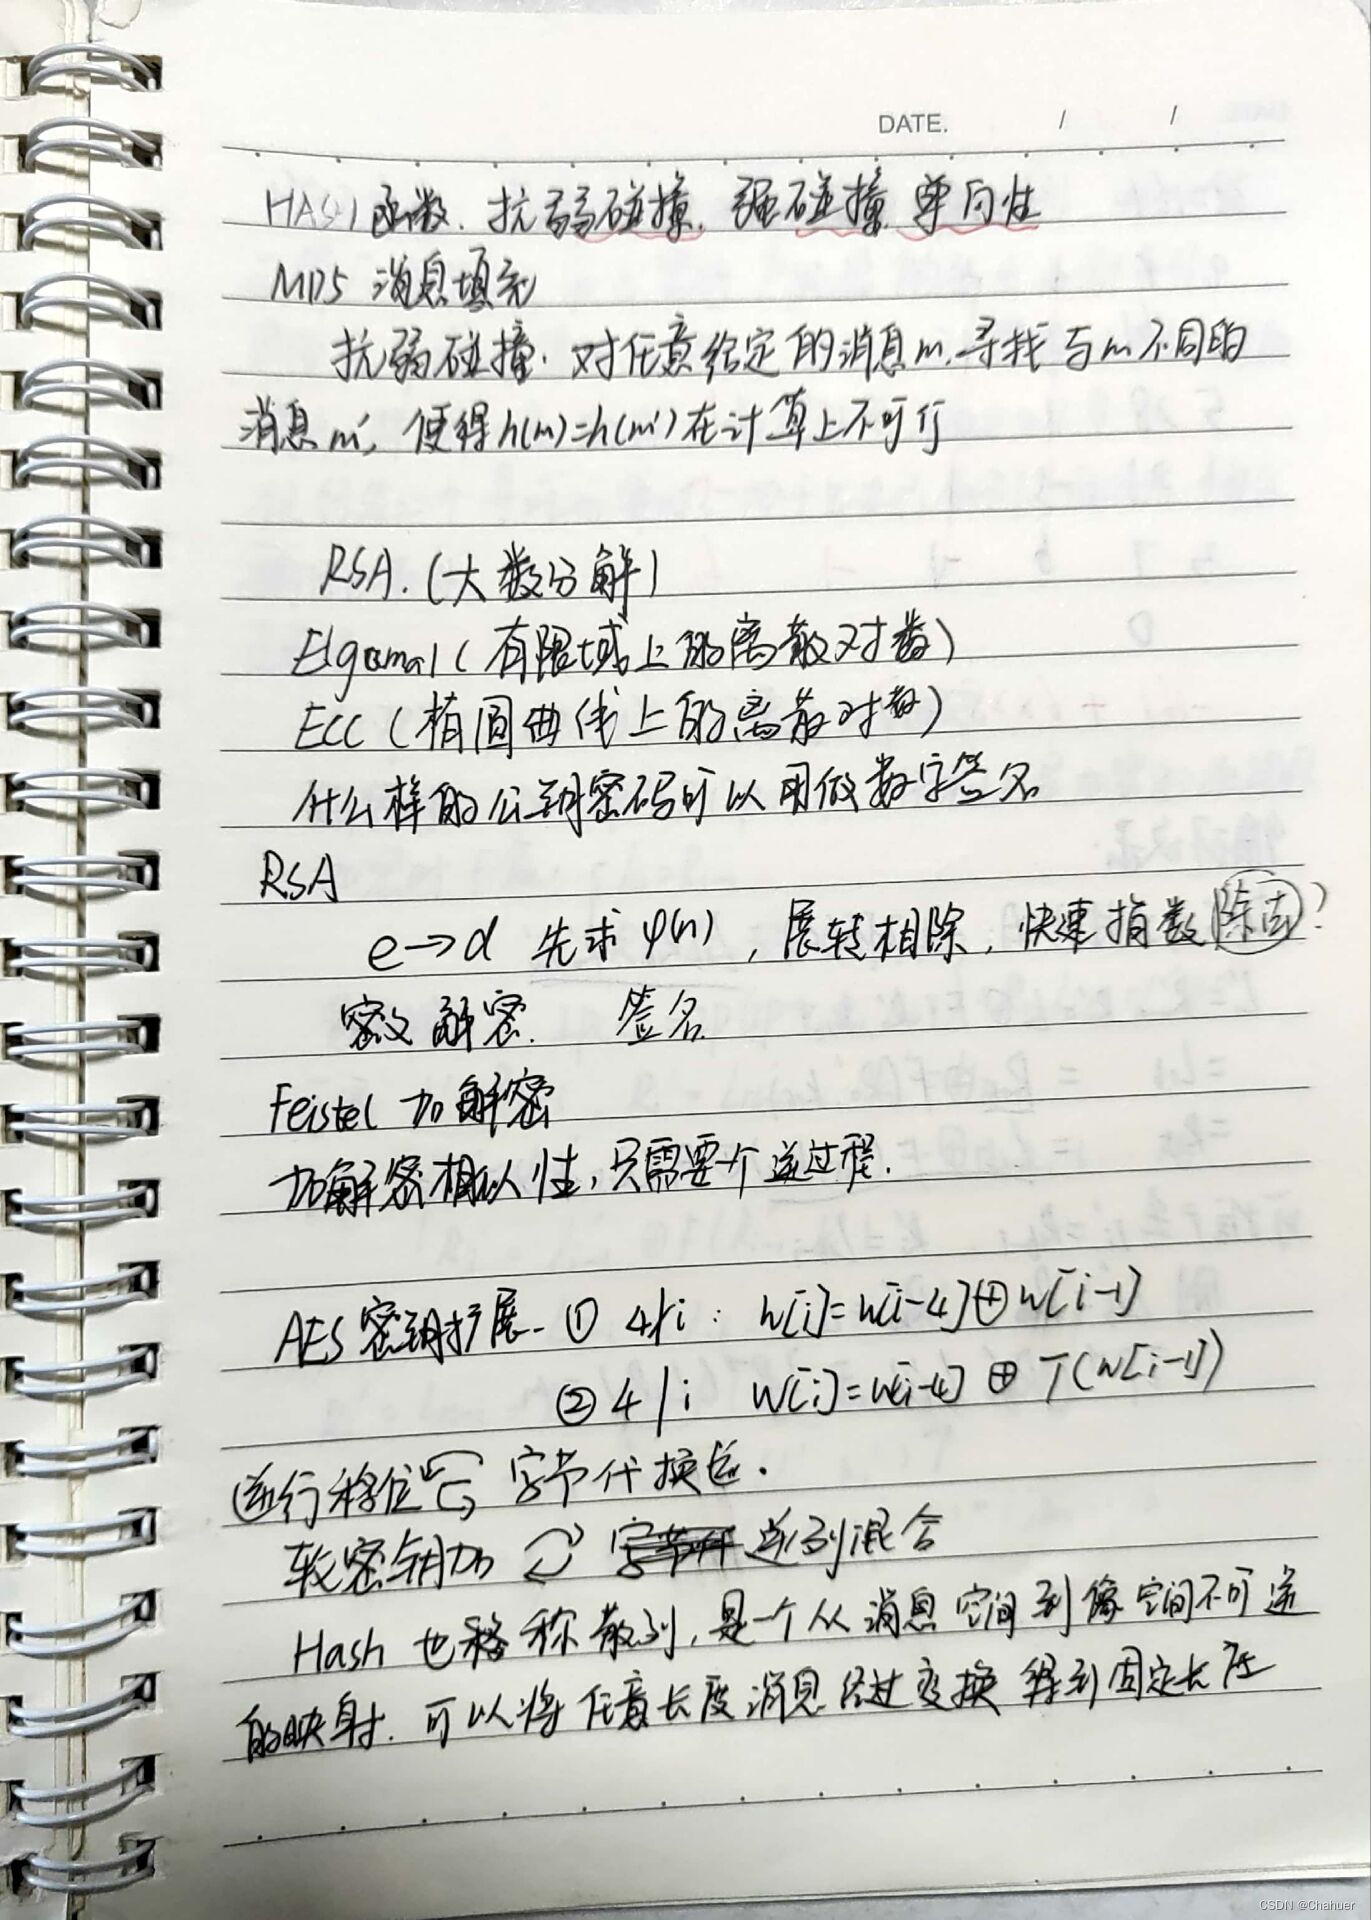 DATE. / /
HASH函数. 抗弱碰撞. 强碰撞. 单向性
MD5 消息填充
抗弱碰撞. 对任意给定的消息m, 寻找与m不同的
消息m', 使得h(m)=h(m')在计算上不可行
RSA. (大数分解)
Elgamal (有限域上的离散对数)
ECC (椭圆曲线上的离散对数)
什么样的公钥密码可以用做数字签名
RSA
e→d 先求φ(n), 展转相除, 快速指数 ?
密文解密. 签名.
Feistel 加解密
加解密相似性, 只需要一个逆过程.
AES密钥扩展. ① 4∤i : w[i]=w[i-4]⊕w[i-1]
② 4|i w[i]=w[i-4]⊕T(w[i-1])
逆行移位 字节代换
轮密钥加 逆列混合
Hash 也称散列, 是一个从消息空间到像空间不可逆
的映射. 可以将任意长度消息经过变换得到固定长度
CSDN @Chahuer